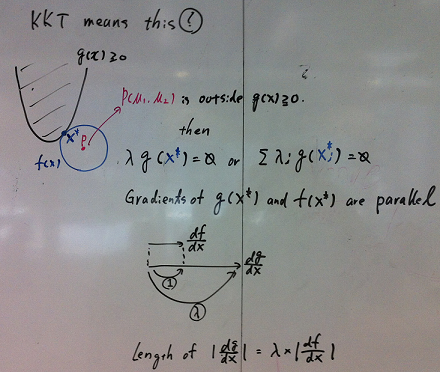 KKT means this ?
g(x) ≥ 0
P(μ₁, μ₂) is outside g(x) ≥ 0.
x*
P
f(x)
then
λ g(x*) = 0 or Σ λᵢ g(x*ᵢ) = 0
Gradients of g(x*) and f(x*) are parallel
df/dx
dg/dx
1
λ
Length of |dg/dx| = λ × |df/dx|